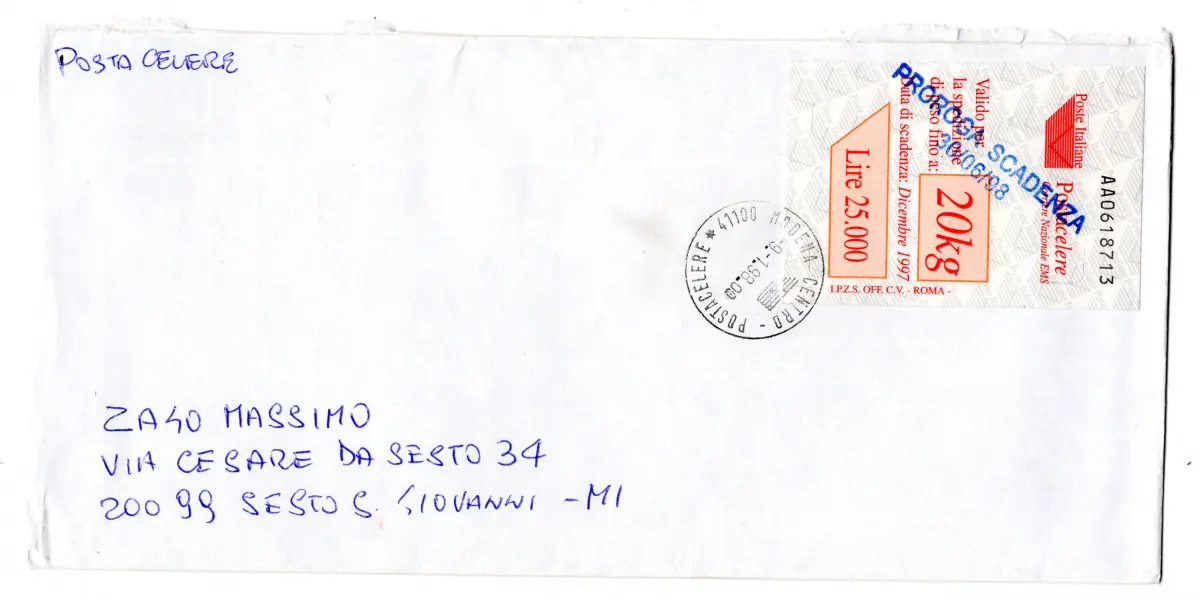 POSTA CELERE
AA0618713
Poste Italiane
Postacelere
Corriere Nazionale EMS
Valido per
la spedizione
di peso fino a:
20kg
Data di scadenza: Dicembre 1997
Lire 25.000
I.P.Z.S. OFF. C.V. - ROMA -
PROROGA SCADENZA
30/06/98
41100 MODENA CENTRO - POSTACELERE *
-9.-1.98.00
ZAGO MASSIMO
VIA CESARE DA SESTO 34
20099 SESTO S. GIOVANNI - MI